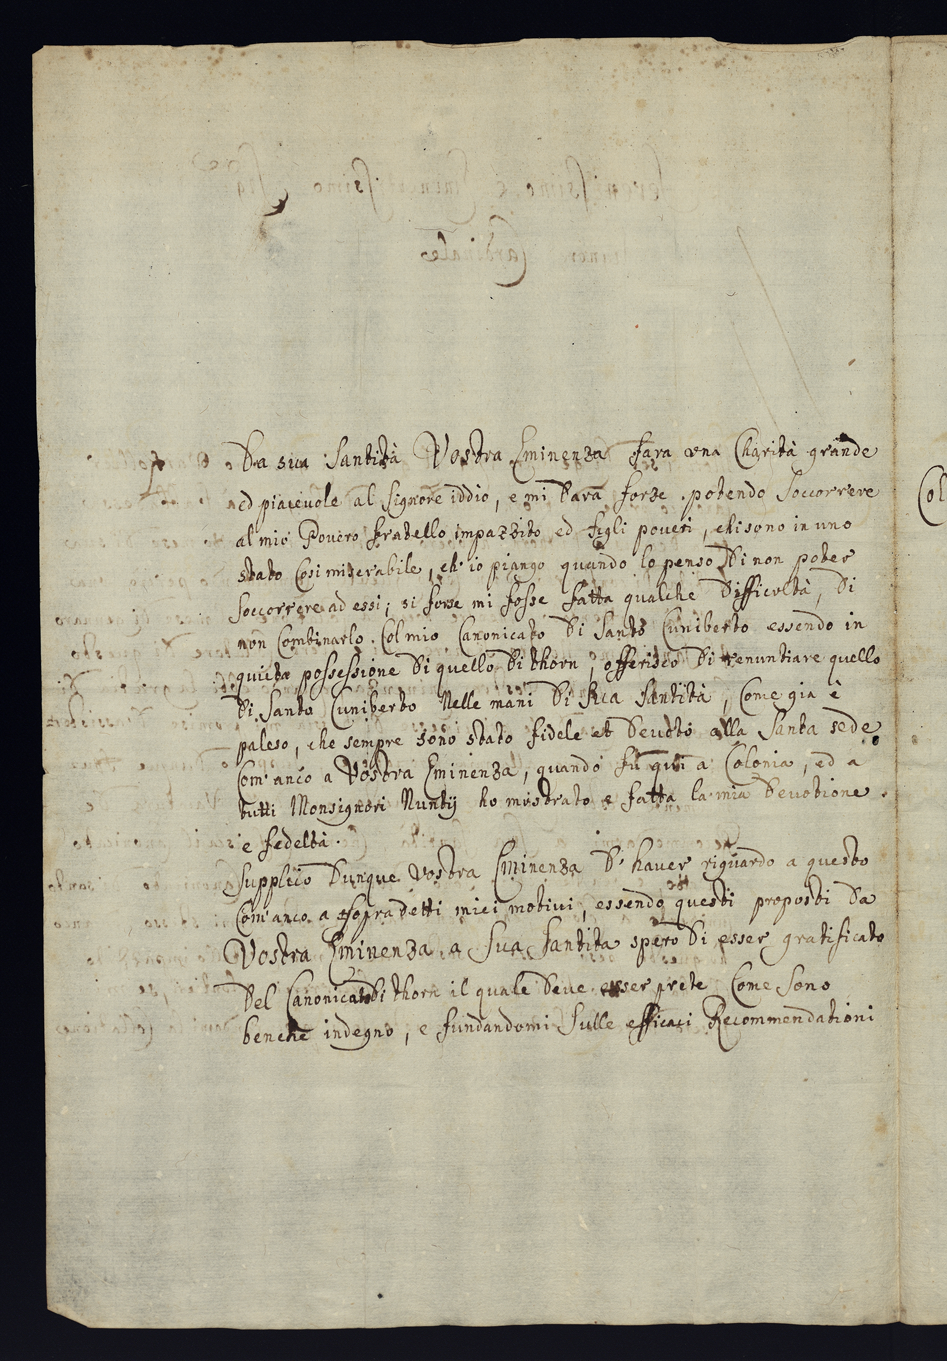 Da sua Santità Vostra Eminenza fara una Charità grande
ed piacevole al Signore iddio, e mi dara forze potendo Soccorrere
al mio Povero fratello impazzito ed figli poveri, chi sono in uno
stato Cosi miserabile, ch' io piango quando lo penso di non poter
Soccorrere ad essi; si forse mi fosse fatta qualche difficoltà, di
non Combinarlo Col mio Canonicato di Santo Cuniberto essendo in
quieta possessione di quello di thorn, offerisco di renuntiare quello
di Santo Cuniberto Nelle mani di Sua Santità, Come gia è
paleso, che sempre sono stato fidele et devoto alla Santa sede
Com' anco a Vostra Eminenza, quando fu qui a Colonia, ed a
tutti Monsignori Nuntij ho mostrato e fatta la mia devotione
e fedeltà.
Supplico dunque Vostra Eminenza d' haver riguardo a questo
Com' anco a sopradetti miei motivi, essendo questi propositi da
Vostra Eminenza a Sua Santita spero di esser gratificato
del Canonicato di thorn il quale deve esser prete Come sono
benche indegno, e fundandomi Sulle efficaci Recommendationi
Col